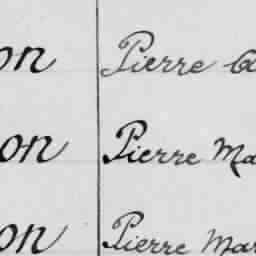 on Pierre
on Pierre Ma
on Pierre Mar